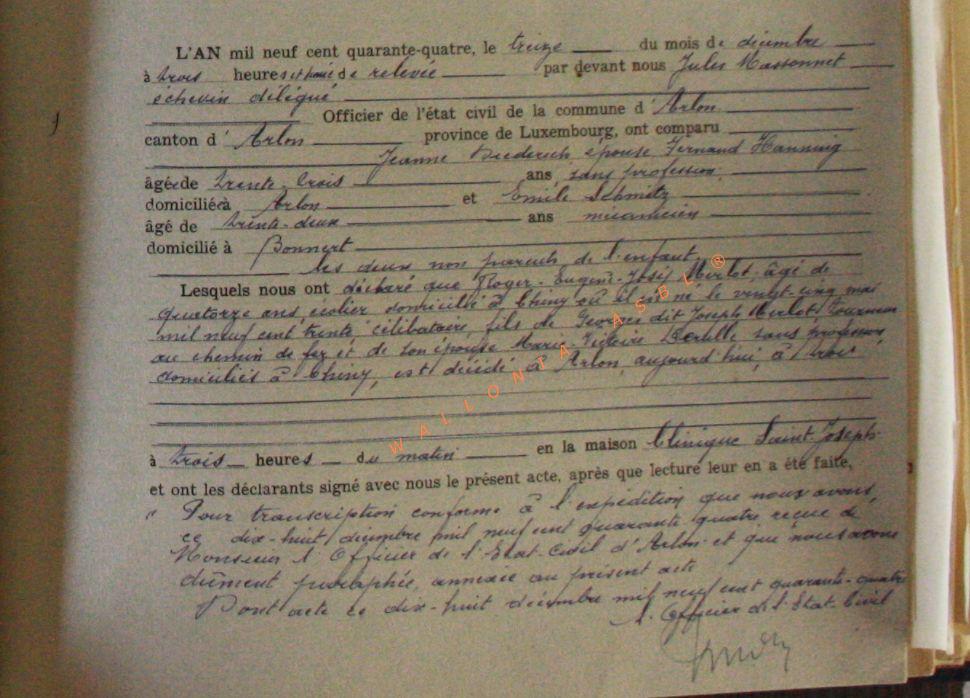 L'AN mil neuf cent quarante-quatre, le treize du mois de décembre
à trois heures et demie de relevée par devant nous Jules Massonnet
échevin délégué
Officier de l'état civil de la commune d'Arlon
canton d'Arlon province de Luxembourg, ont comparu
Jeanne Diederich épouse Fernand Hanning
âgée de trente-trois ans, sans profession,
domiciliée à Arlon et Emile Schmitz
âgé de trente-deux ans mécanicien
domicilié à Bonnert
les deux non parents de l'enfant.
Lesquels nous ont déclaré que Roger-Eugène-José Merlot, âgé de
quatorze ans, écolier domicilié à Chiny où il est né le vingt-cinq mai
mil neuf cent trente célibataire, fils de Georges dit Joseph Merlot,
au chemin de fer et de son épouse Marie sans profession,
domiciliés à Chiny, est décédé à Arlon, aujourd'hui, à trois
à trois heures du matin en la maison Clinique Saint-Joseph
et ont les déclarants signé avec nous le présent acte, après que lecture leur en a été faite,
Pour transcription conforme à l'expédition que nous avons,
ce dix-huit décembre mil neuf cent quarante quatre reçue de
Monsieur l'Officier de l'Etat-Civil d'Arlon et que nous avons
dûment paraphée, annexée au présent acte
Dont acte ce dix-huit décembre mil neuf cent quarante-quatre
L'Officier de l'Etat-Civil
WALLONTA ASBL ®